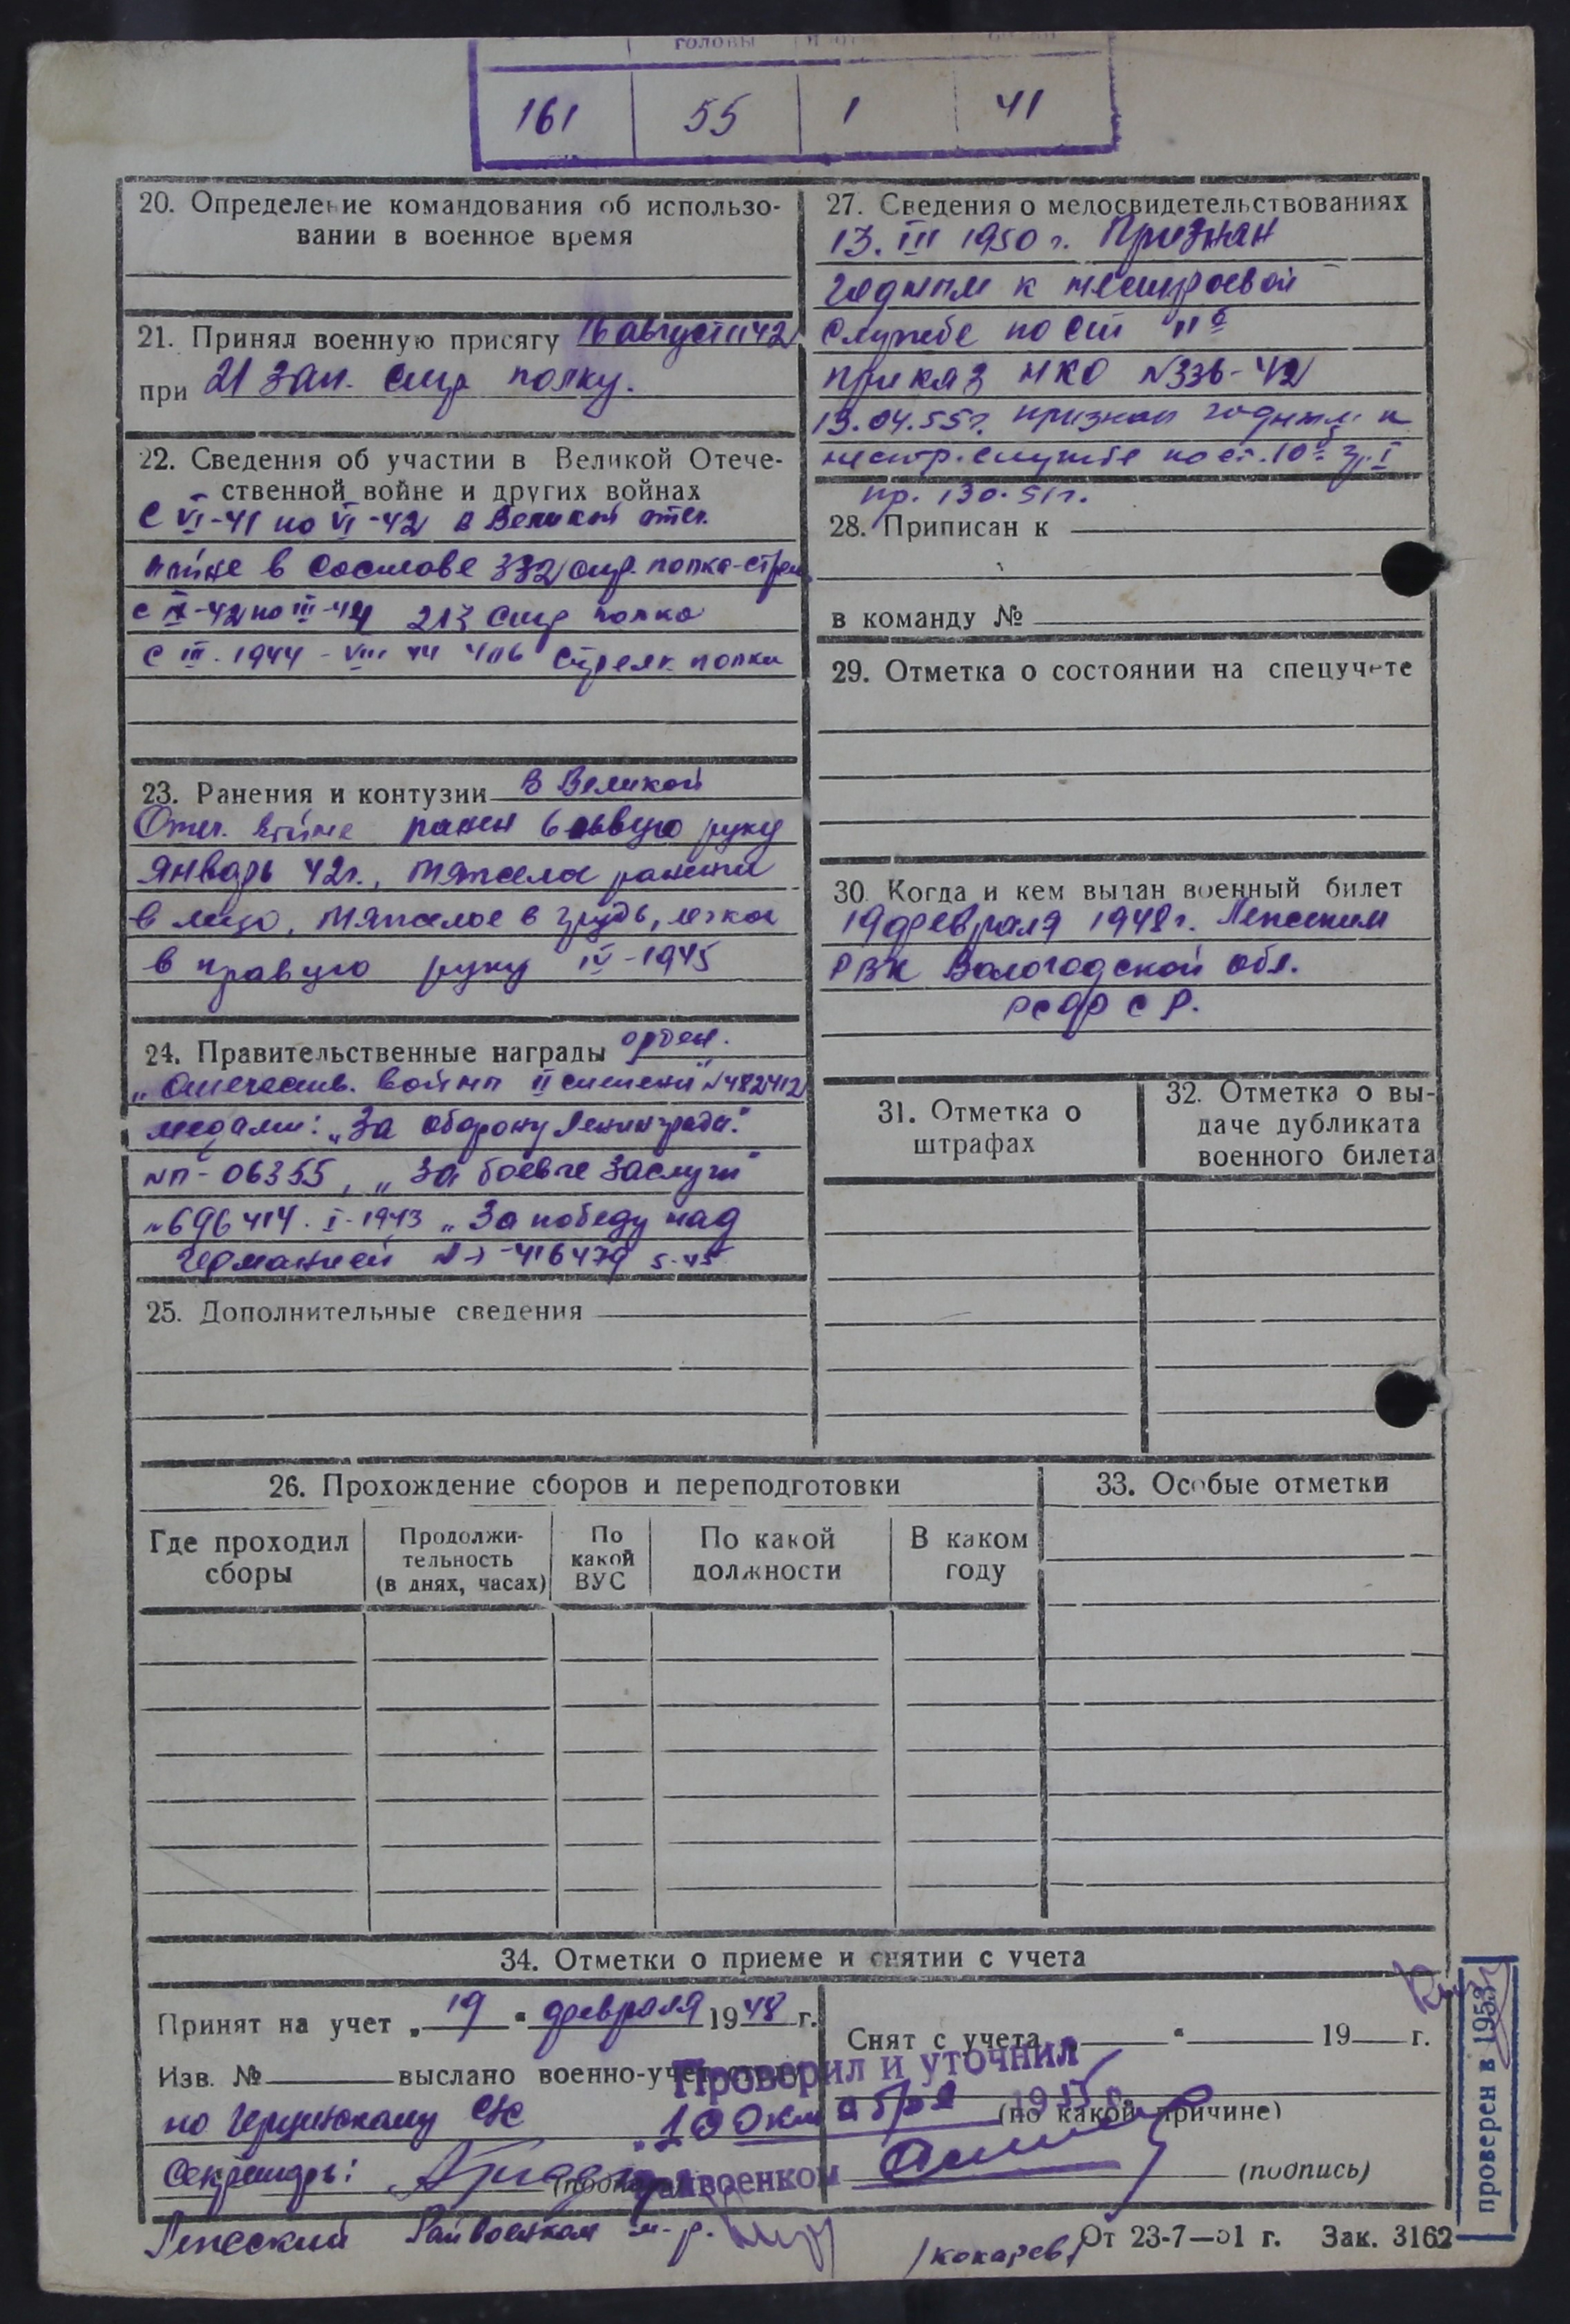 головы
161 55 1 41
20. Определение командования об использо-
вании в военное время
21. Принял военную присягу 16 август 1942
при 21 зап. стр полку.
22. Сведения об участии в Великой Отече-
ственной войне и других войнах
С VI-41 по VI-42 в Великой отеч.
войне в составе 332 стр. полка-стрел
с IX-42 по III-44 213 стр полка
с III.1944 - VIII 44 406 стрелк. полка
23. Ранения и контузии В Великой
Отеч. войне ранен в левую руку
январь 42г., тяжело ранен
в лицо, тяжелое в грудь, легкое
в правую руку IV-1945
24. Правительственные награды орден.
„Отечеств. войны II степени" №482412
медали: „За оборону Ленинграда".
№П-06355, „За боевые заслуги"
№696414. I-1943 „За победу над
Германией 416479 5-45
25. Дополнительные сведения
27. Сведения о медосвидетельствованиях
13.III 1950 г. Признан
годным к нестроевой
службе по ст 11б
приказ НКО №336-42
13.04.55г. признан годным к
нестр. службе по ст. 10б гр. I
пр. 130-51г.
28. Приписан к
в команду №
29. Отметка о состоянии на спецучете
30. Когда и кем выдан военный билет
19 февраля 1948г.
РВК Вологодской обл.
РСФСР.
31. Отметка о
штрафах
32. Отметка о вы-
даче дубликата
военного билета
26. Прохождение сборов и переподготовки
Где проходил
сборы
Продолжи-
тельность
(в днях, часах)
По
какой
ВУС
По какой
должности
В каком
году
33. Особые отметки
34. Отметки о приеме и снятии с учета
Принят на учет „19" февраля 1948 г.
Изв. № выслано военно-учет
по СЖ
Секретарь:
Райвоенком м-р.
Снят с учета „ " 19 г.
(по какой причине)
(подпись)
Проверил и уточнил
„10 октября 1955 г.
Райвоенком
/Кокарев/
От 23-7—51 г. Зак. 3162
проверен в 1953